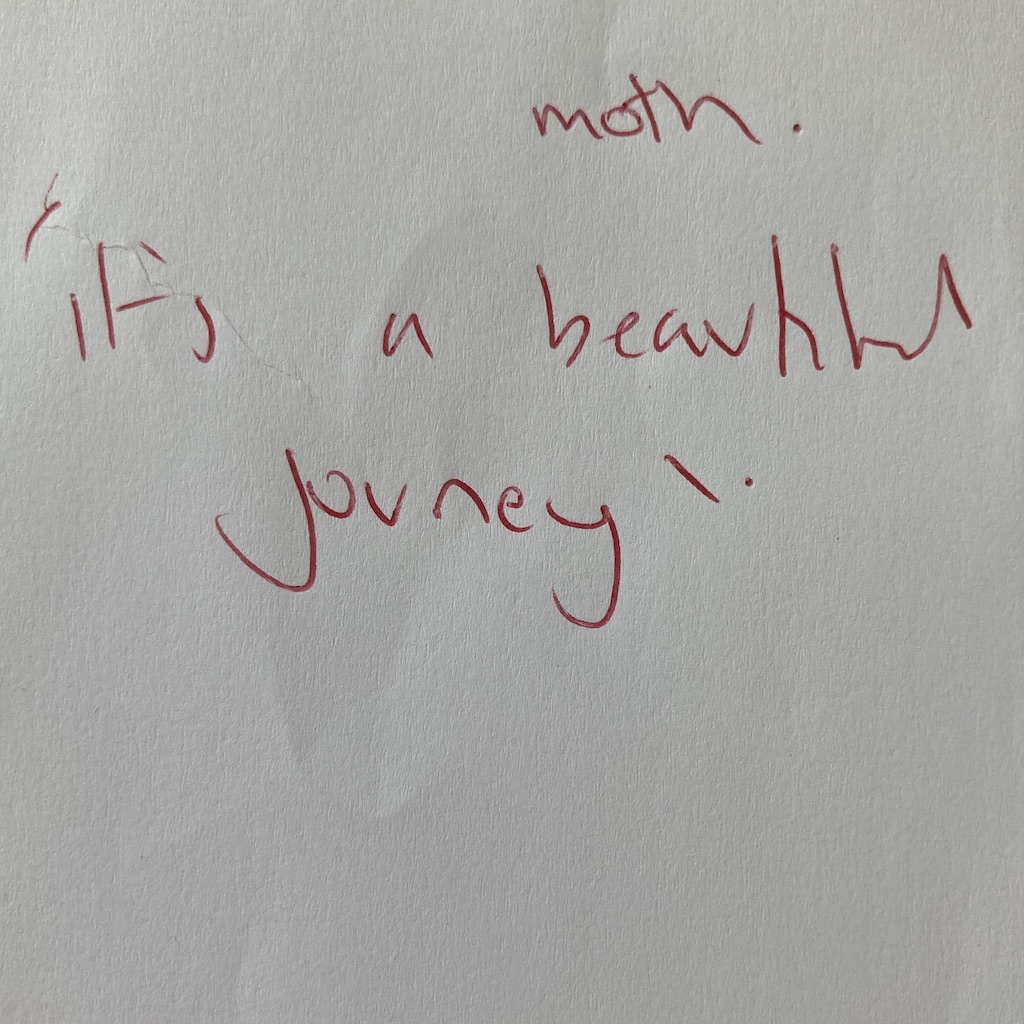 moth.
'it's a beautiful
journey'.